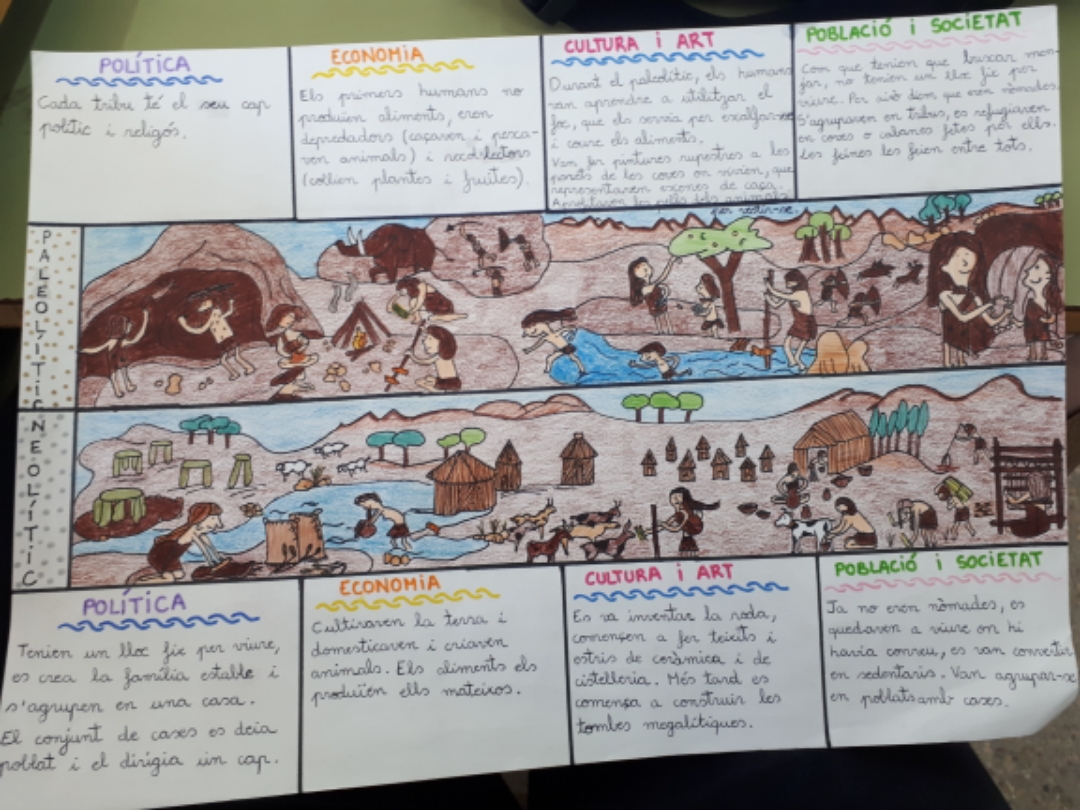 POLÍTICA
Cada tribu té el seu cap
polític i religós.
ECONOMIA
Els primers humans no
produïen aliments, eren
depredadors (caçaven i pesca-
ven animals) i recol·lectors
(collien plantes i fruites).
CULTURA i ART
Durant el paleolític, els humans
van aprendre a utilitzar el
foc, que els servia per escalfar-se
i coure els aliments.
Van fer pintures rupestres a les
parets de les coves on vivien, que
representaven escenes de caça.
Aprofitaven les pells dels animals
per vestir-se.
POBLACIÓ i SOCIETAT
Com que tenien que buscar men-
jar, no tenien un lloc fix per
viure. Per això diem que eren nòmades.
S'agrupaven en tribus, es refugiaven
en coves o cabanes fetes per ells.
Les feines les feien entre tots.
PALEOLÍTIC
NEOLÍTIC
POLÍTICA
Tenien un lloc fix per viure,
es crea la família estable i
s'agrupen en una casa.
El conjunt de cases es deia
poblat i el dirigia un cap.
ECONOMIA
Cultivaven la terra i
domesticaven i criaven
animals. Els aliments els
produïen ells mateixos.
CULTURA i ART
Es va inventar la roda,
comencen a fer teixits i
estris de ceràmica i de
cistelleria. Més tard es
comença a construir les
tombes megalítiques.
POBLACIÓ i SOCIETAT
Ja no eren nòmades, es
quedaven a viure on hi
havia conreu, es van convertir
en sedentaris. Van agrupar-se
en poblats amb cases.